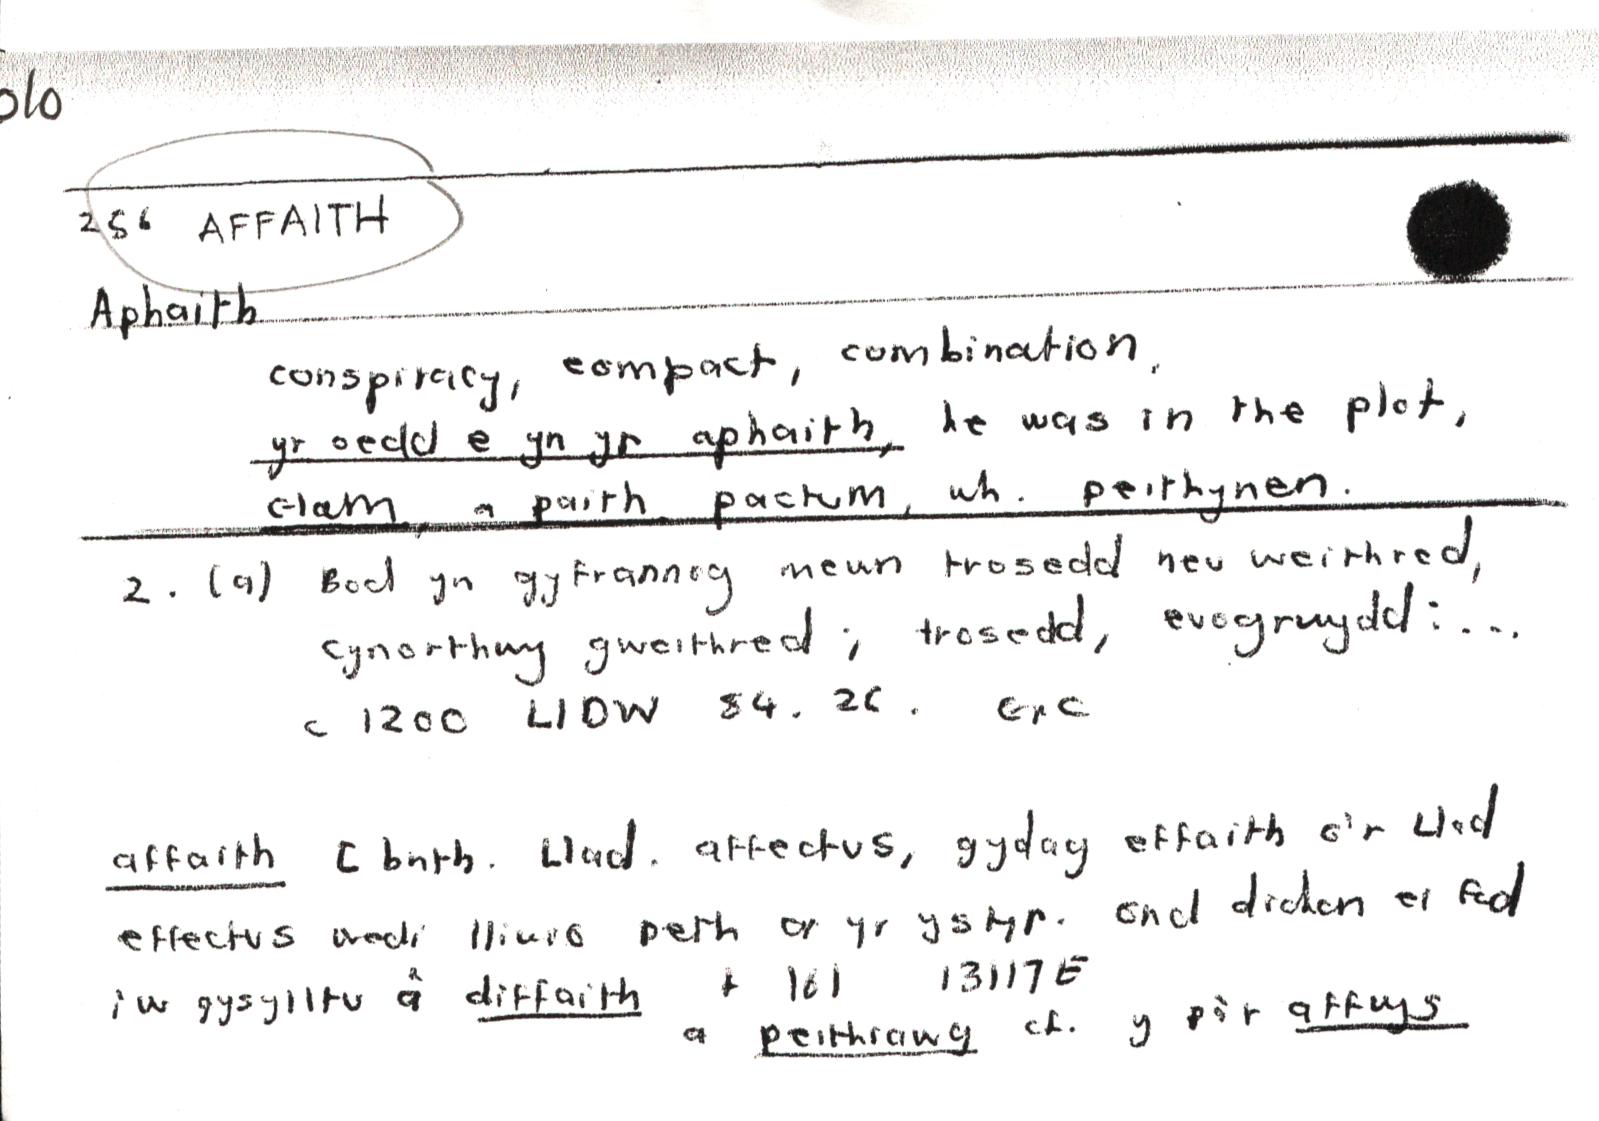 olo
256 AFFAITH
Aphaith
conspiracy, compact, combination,
yr oedd e yn yr aphaith, he was in the plot,
Glam, a paith pactum, wh. peithynen.
2. (a) Bod yn gyfrannog mewn trosedd neu weithred,
cynorthwy gweithred; trosedd, euogrwydd: ...
c 1200 LlDW 84. 26. etc
affaith [bnth. Llad. affectus, gyda effaith o'r Llad
effectus wedi lliwio peth ar yr ystyr. ond dichon ei fod
iw gysylltu â diffaith + 161 13117E
a peithiawg cf. y pâr affwys